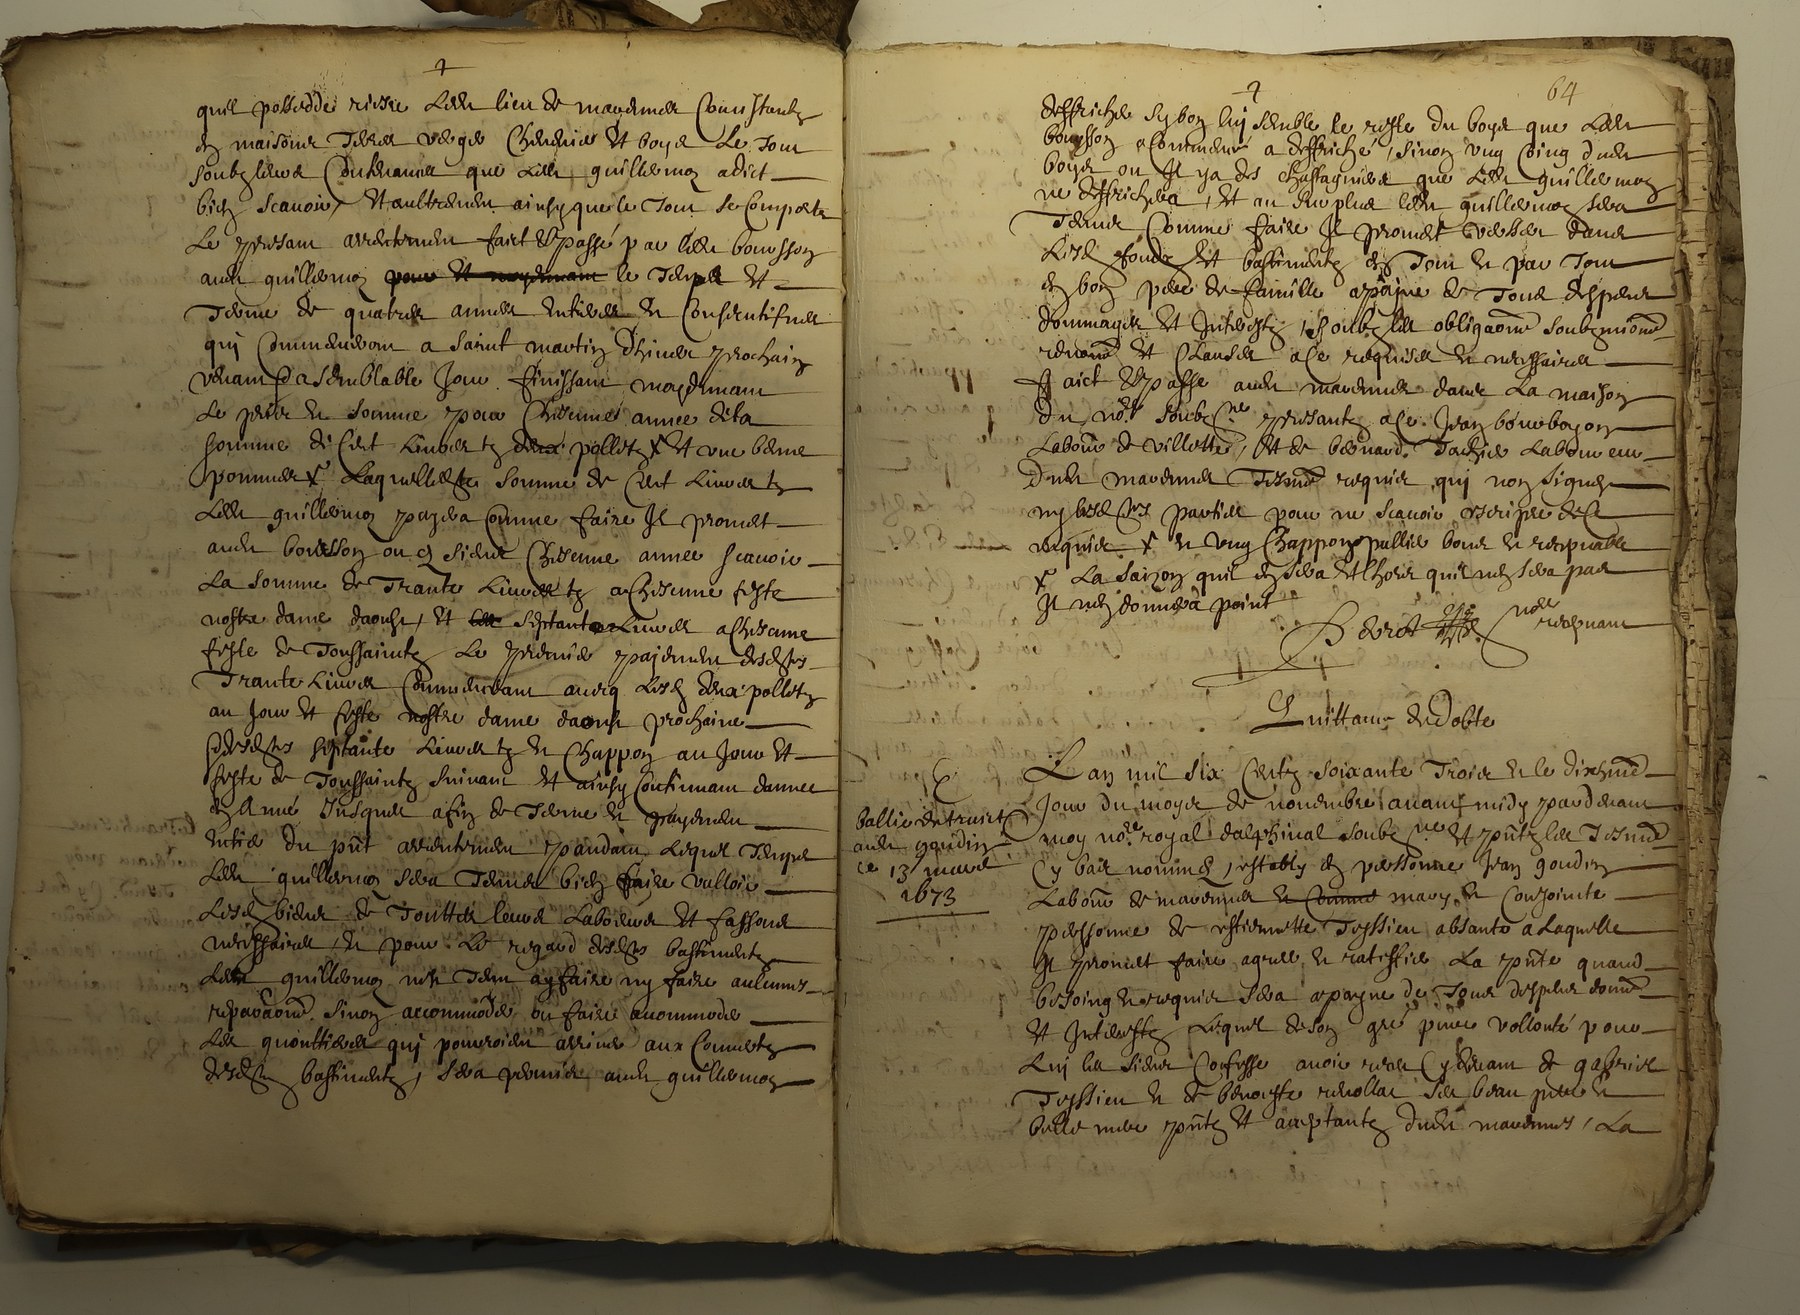 quil possedde riesre Ledt lieu de marennes Consistantz
en maisons Terres verger Chenevier et boys Le Tout
soubz leurs Contenances que Ledt guillermoz a dict
bien scavoir, Et aultrement ainsy que le Tout se Comporte
Le presant arrentement faict Et passé par ledt bousson
audt guillermoz pour Et moyenant le Temps Et
Terme de quatres annees entieres et Consecutifves
qui Commenceront a saint martin dhiver prochain
venant Et a semblable Jour finissant moyenant
Le prix et somme pour Chescune annee de la
somme de Cent Livres tz deux polletz X Et une benne
pommes X Laquelle somme de Cent Livres tz
Ledt guillermoz payera Comme faire Il promet
audt bousson ou es siens Chescune annee scavoir
La somme de Trante Livres tz a Chescune feste
nostre dame daoust, Et les septante Livres a Chescune
feste de Toussaintz Le premier payement desdes
Trante Livres Commencant avecq Lesd deux polletz
au Jour Et feste nostre dame daoust prochaine
desdes septante Livres tz et Chappon au Jour Et
feste de Toussaintz suivant Et ainsy Continuant dannee
en Anné Jusques a fin de Terme et payement
entier du pnt arrentement pandant Lequel Temps
Ledt guillermoz sera Tenu bien faire valloir
Lesd biens de Touttes leurs Labeures Et fassons
necessaires, et pour Le regard desdes bastimentz
Ledt guillermoz nest Tenu a y faire ny faire aulcunes
reparaons sinon accommoder ou faire accommoder
Les gouttieres qui pourroient arriver aux Couvertz
desdes bastimentz, sera permis audt guillermoz
64
deffricher sy bon luy semble le reste du boys que Ledt
bousson a Commencé a deffriché, sinon ung Coing dudt
boys ou Il y a des Chastagniers que Ledt guillermoz
ne deffrichera, Et au surplus ledt guillermoz sera
Tenu Comme faire Il promet verser dans
Lesd fonds Et bastimentz en Tout et par Tout
en bon pere de famille a payne de Tous despens
dommages Et Interestz, soubz les obligaons soubzmions
renons Et Clauses a Ce requises et necessaires
Faict Et Passé audt marennes dans La maison
du nore soubzne presantz a Ce Jean
Labour de villette, Et de bernard Labour
dudt marennes Tesmz requis qui non signé
ny lesdes parties pour ne scavoir escripre de Ce
requis X et ung Chappon pallie bons et recepvable
X La saizon quil en sera Et lhors quil nen sera pas
Il nen donnera point
nore recepvant
Quittance de dobte
Lan mil six Centz soixante Trois et le dixhme
Jour du moys de novembre avant midy pardevant
moy nore royal dalphinal soubzne Et pntz les Tesmz
Cy bas nommes, estably en personne Jean goudin
Labour de marennes et Comme mary et Conjointe
personne de estiennette Teyssieu absante a Laquelle
Il promet faire agreer et ratiffier La pnte quand
besoing et requis sera a payne de Tous despens domes
Et Interestz Lequel de son gré pure vollonté pour
Luy les siens Confesse avoir receu Cy devant de gabriel
Teyssieu et de benoiste revollat ses beau pere et
belle mere pntz Et acceptantz dudt marennes, La
ballie extraict
audt goudin
ce 13 mars
1673